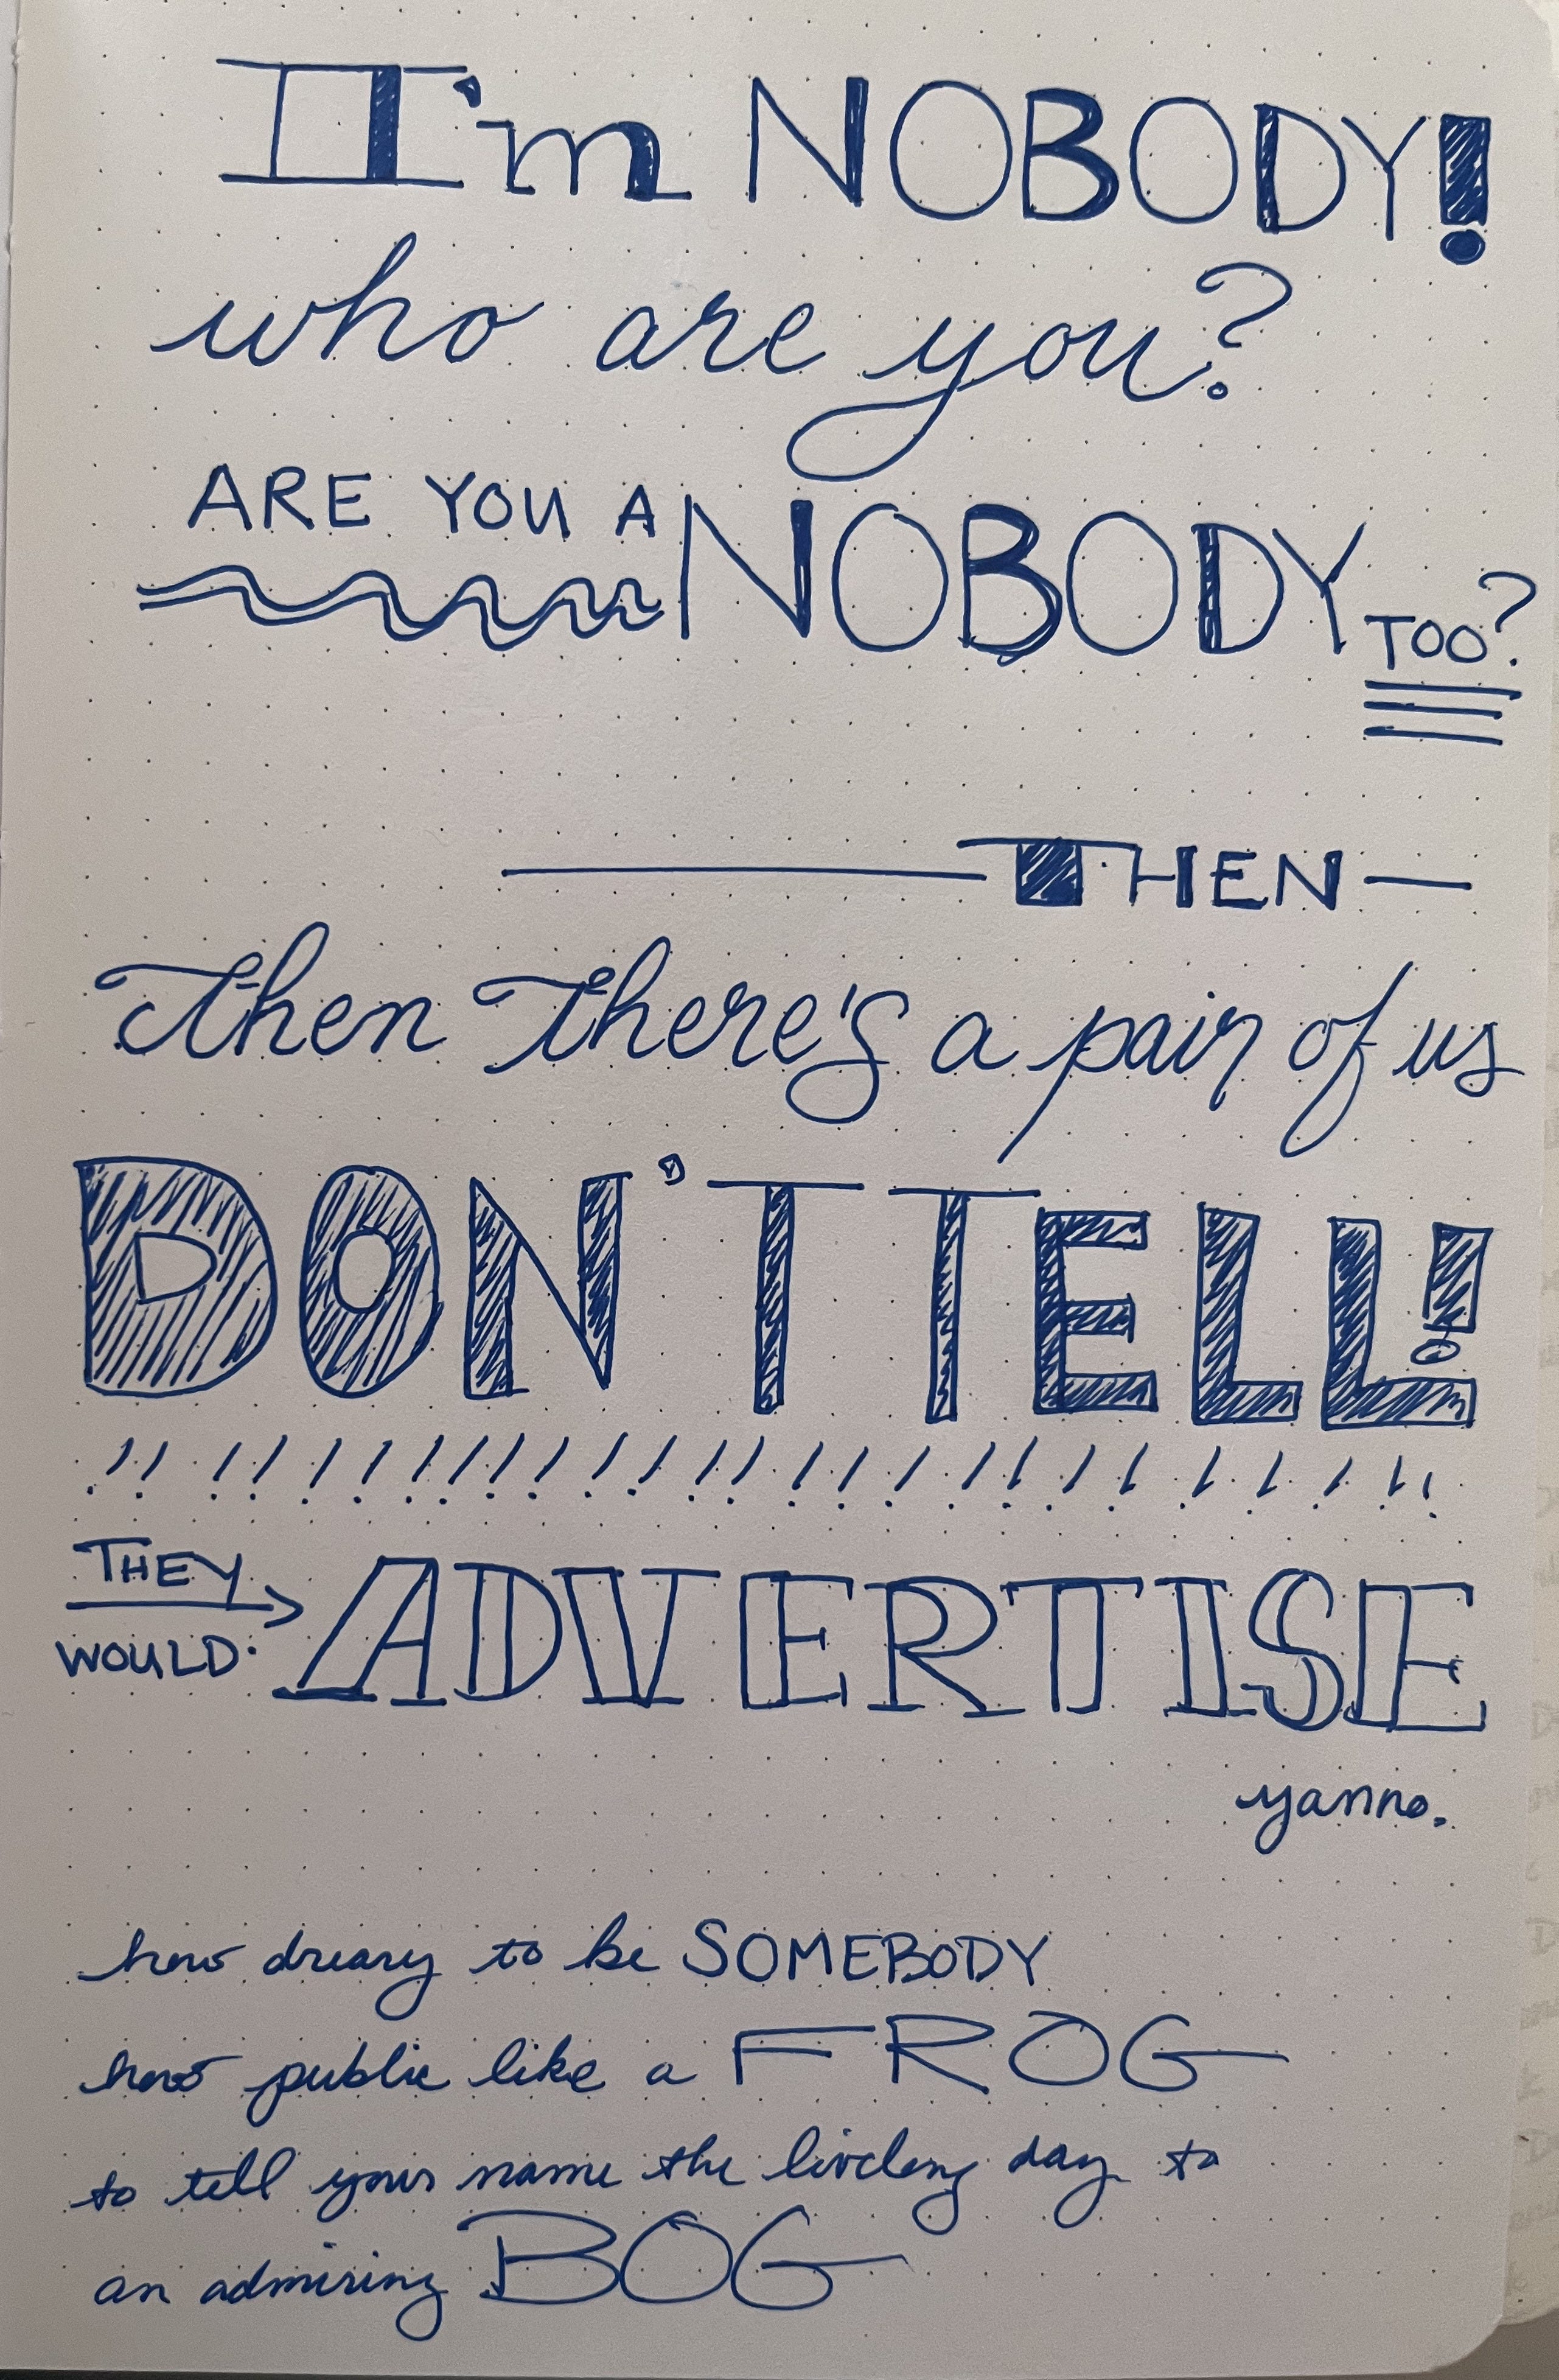 I'm NOBODY!
who are you?
ARE YOU A NOBODY TOO?
THEN
Then there's a pair of us
DON'T TELL!
THEY WOULD ADVERTISE
yanno.
how dreary to be SOMEBODY
how public like a FROG
to tell your name the livelong day to
an admiring BOG